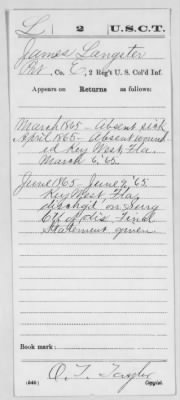 L | 2 | U.S.C.T.
James Langster
Pvt, Co. E, 2 Reg't U. S. Col'd Inf.
Appears on Returns as follows:
March 1865 - Absent sick
April 1865 - Absent wound
ed Key West, Fla.
March 6, 65.
June 1865 - June 9, '65
Key West, Fla.
disch'g'd on Surg
Ctf of Dis. Final
Statement given.
Book mark:
O. T. Taylor
(546) Copyist.